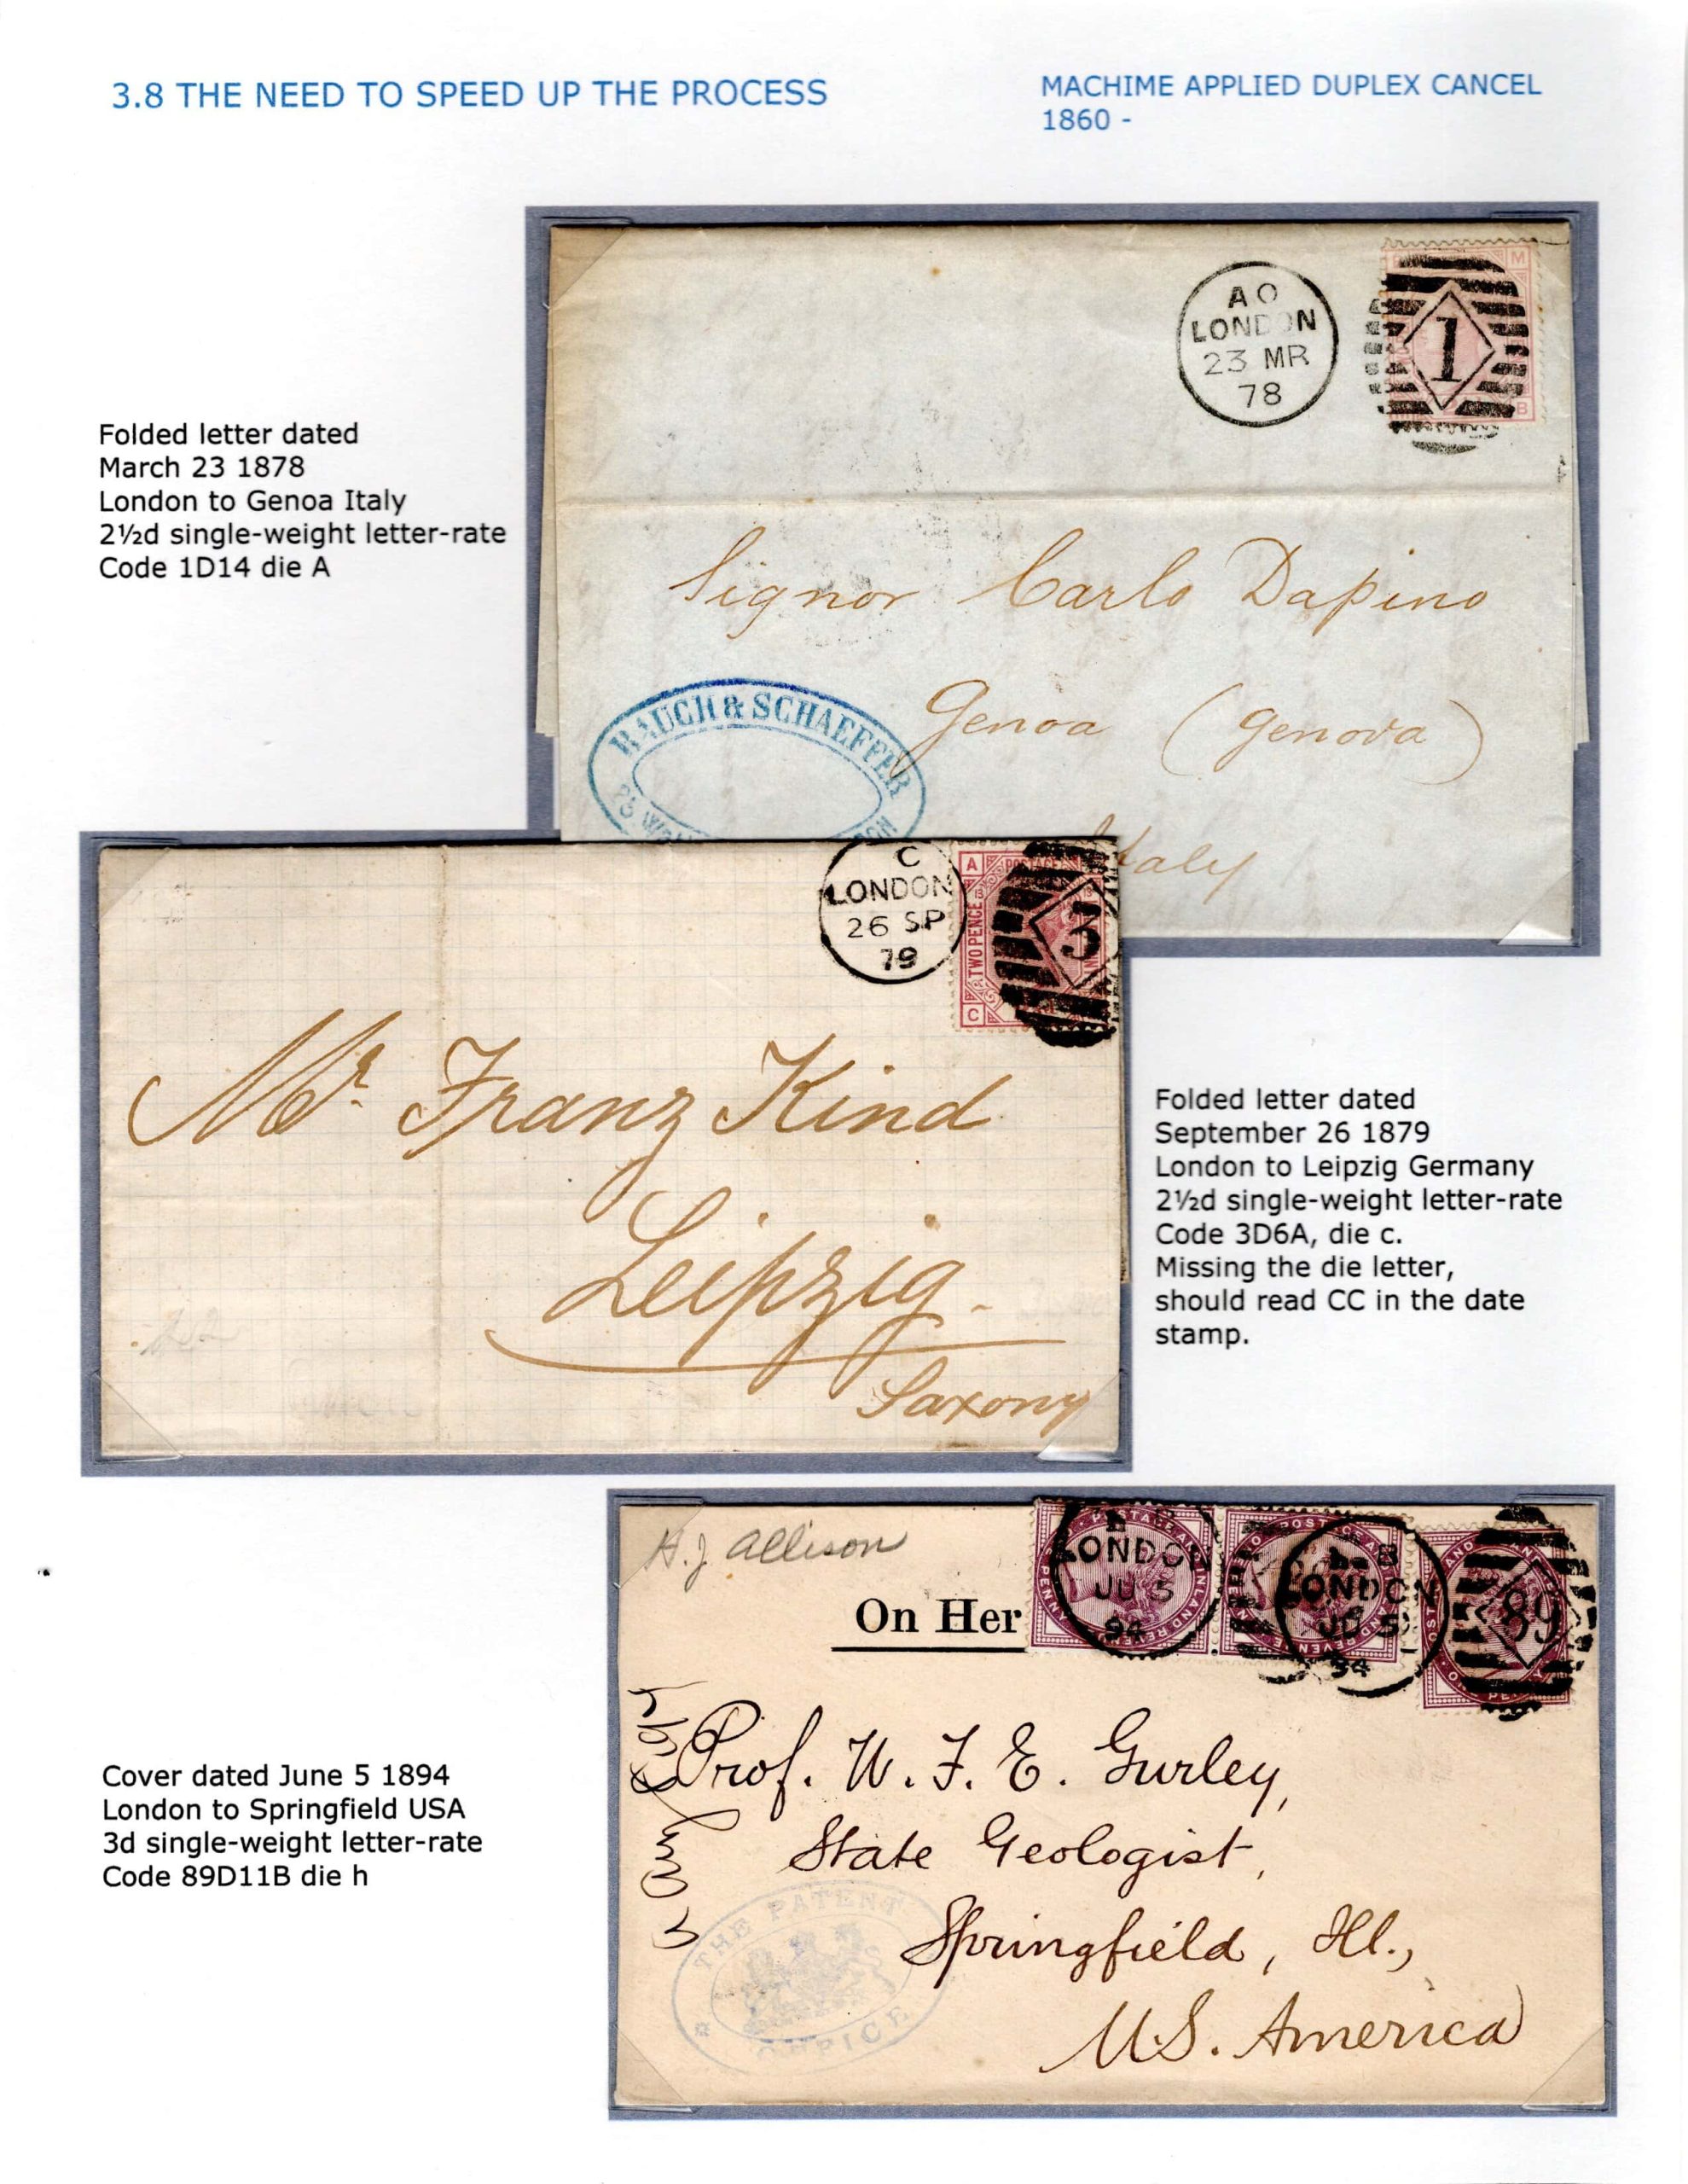 3.8 THE NEED TO SPEED UP THE PROCESS
MACHIME APPLIED DUPLEX CANCEL
1860 -
A O
LONDON
23 MR
78
1
M
B
Folded letter dated
March 23 1878
London to Genoa Italy
2½d single-weight letter-rate
Code 1D14 die A
Signor Carlo Dapino
Genoa (Genova)
Italy
RAUCH & SCHAEFFER
C
LONDON
26 SP
79
A
POSTAGE
TWO PENCE
C
3
Mr. Franz Kind
Leipzig.
Saxony
Folded letter dated
September 26 1879
London to Leipzig Germany
2½d single-weight letter-rate
Code 3D6A, die c.
Missing the die letter,
should read CC in the date
stamp.
H. J. Allison
On Her
LONDON
JU 5
94
POSTAGE AND INLAND REVENUE
PENNY
B
LONDON
JU 5
94
89
Prof. W. F. E. Gurley,
State Geologist,
Springfield, Ill.,
U.S. America
THE PATENT
OFFICE
Cover dated June 5 1894
London to Springfield USA
3d single-weight letter-rate
Code 89D11B die h